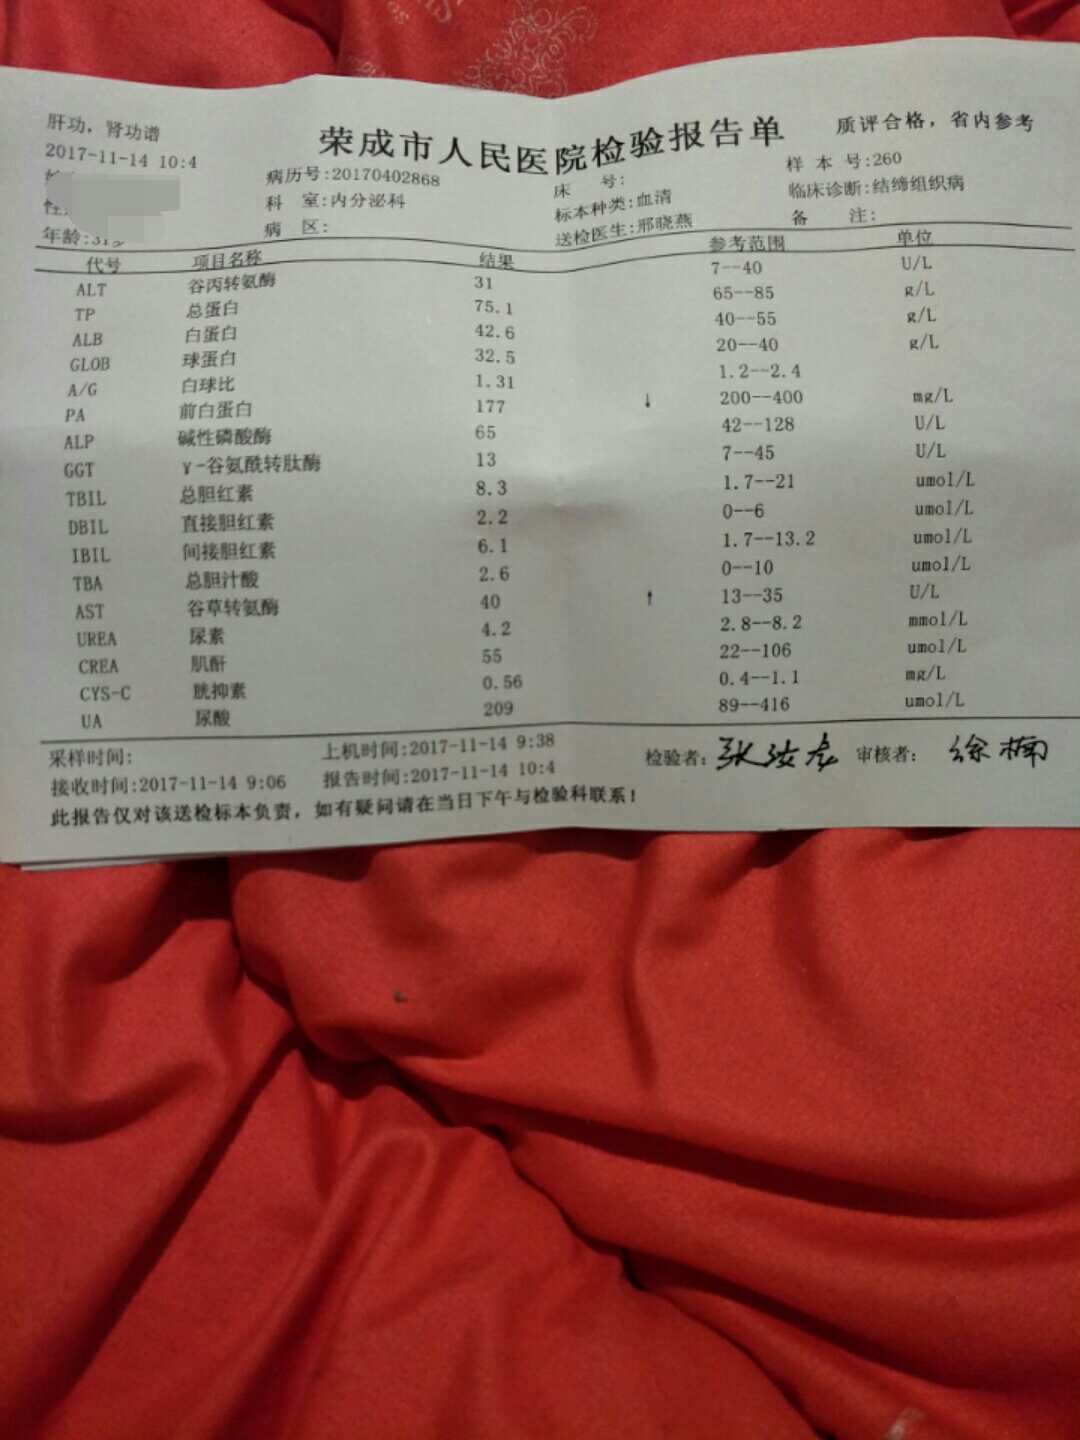 肝功，肾功谱
荣成市人民医院检验报告单
质评合格，省内参考
2017-11-14 10:4
病历号:20170402868
床 号:
样 本 号:260
科 室:内分泌科
标本种类:血清
临床诊断:结缔组织病
年龄:31岁
病 区:
送检医生:邢晓燕
备 注:
代号 项目名称 结果 参考范围 单位
ALT 谷丙转氨酶 31 7--40 U/L
TP 总蛋白 75.1 65--85 g/L
ALB 白蛋白 42.6 40--55 g/L
GLOB 球蛋白 32.5 20--40 g/L
A/G 白球比 1.31 1.2--2.4
PA 前白蛋白 177 ↓ 200--400 mg/L
ALP 碱性磷酸酶 65 42--128 U/L
GGT γ-谷氨酰转肽酶 13 7--45 U/L
TBIL 总胆红素 8.3 1.7--21 umol/L
DBIL 直接胆红素 2.2 0--6 umol/L
IBIL 间接胆红素 6.1 1.7--13.2 umol/L
TBA 总胆汁酸 2.6 0--10 umol/L
AST 谷草转氨酶 40 ↑ 13--35 U/L
UREA 尿素 4.2 2.8--8.2 mmol/L
CREA 肌酐 55 22--106 umol/L
CYS-C 胱抑素 0.56 0.4--1.1 mg/L
UA 尿酸 209 89--416 umol/L
采样时间: 上机时间:2017-11-14 9:38 检验者: 审核者: 徐楠
接收时间:2017-11-14 9:06 报告时间:2017-11-14 10:4
此报告仅对该送检标本负责，如有疑问请在当日下午与检验科联系！